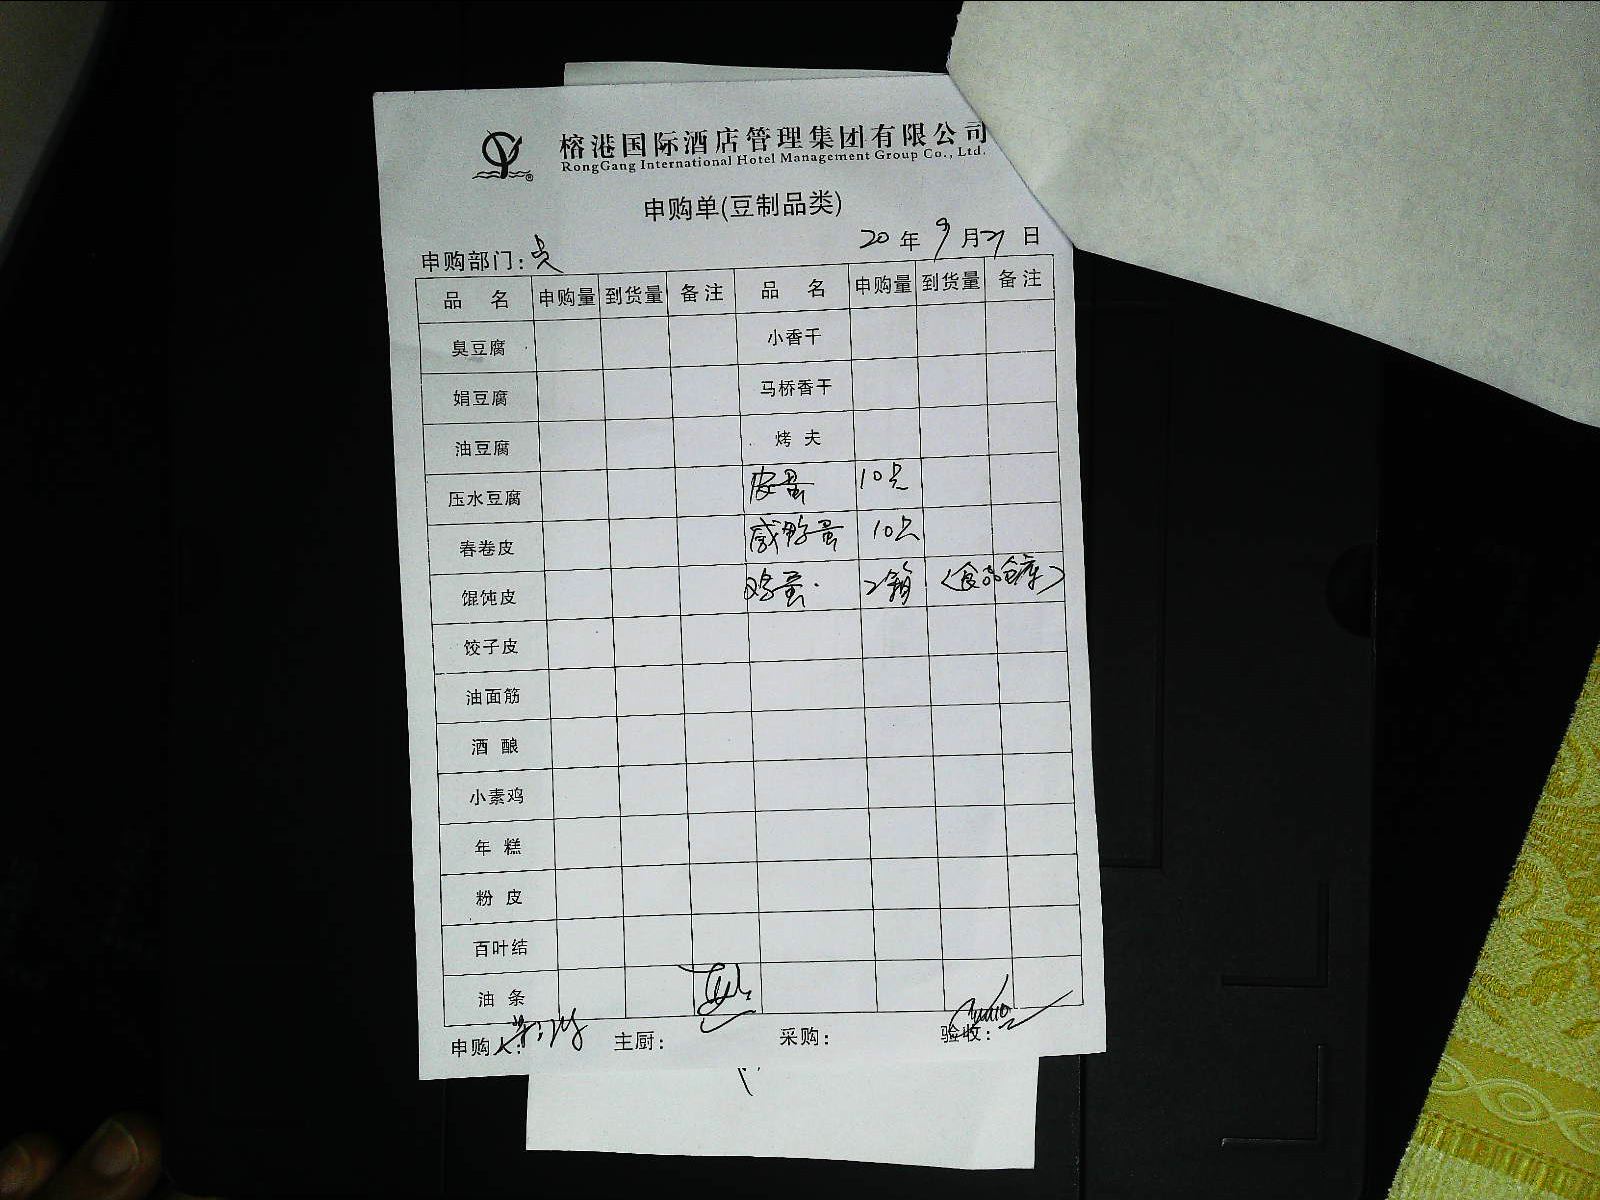 榕港国际酒店管理集团有限公司
RongGang International Hotel Management Group Co., Ltd.
申购单(豆制品类)
20 年 9 月 21 日
申购部门: 点
品 名 申购量 到货量 备注 品 名 申购量 到货量 备注
臭豆腐 小香干
娟豆腐 马桥香干
油豆腐 烤 夫
压水豆腐 皮蛋 10只
春卷皮 咸鸭蛋 10只
馄饨皮 鸡蛋 2箱 (食品仓库)
饺子皮
油面筋
酒 酿
小素鸡
年 糕
粉 皮
百叶结
油 条
申购人: 主厨: 采购: 验收: